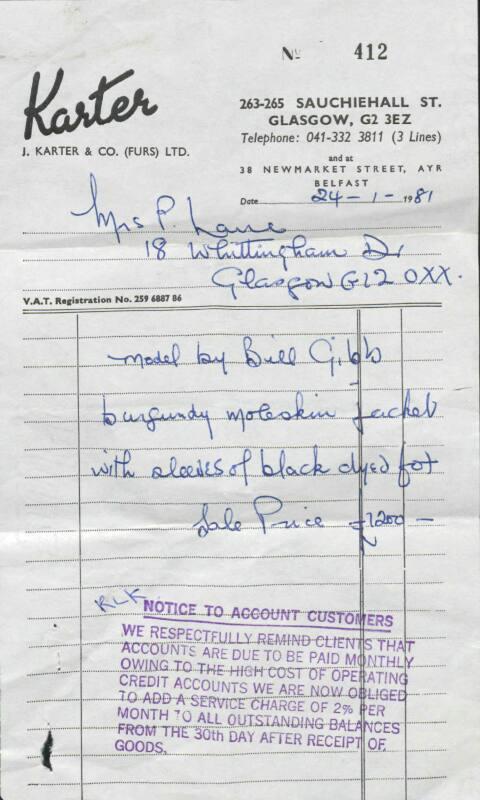 No 412
Karter
J. KARTER & CO. (FURS) LTD.
263-265 SAUCHIEHALL ST.
GLASGOW, G2 3EZ
Telephone: 041-332 3811 (3 Lines)
and at
38 NEWMARKET STREET, AYR
BELFAST
Date 24-1-1981
Mrs P. Lane
18 Whittingham Dr
Glasgow G12 0XX.
V.A.T. Registration No. 259 6887 86
model by Bill Gibb
burgundy moleskin jacket
with sleeves of black dyed fox
Sale Price £1200 —
N
RLK
NOTICE TO ACCOUNT CUSTOMERS
WE RESPECTFULLY REMIND CLIENTS THAT
ACCOUNTS ARE DUE TO BE PAID MONTHLY
OWING TO THE HIGH COST OF OPERATING
CREDIT ACCOUNTS WE ARE NOW OBLIGED
TO ADD A SERVICE CHARGE OF 2% PER
MONTH TO ALL OUTSTANDING BALANCES
FROM THE 30th DAY AFTER RECEIPT OF
GOODS.